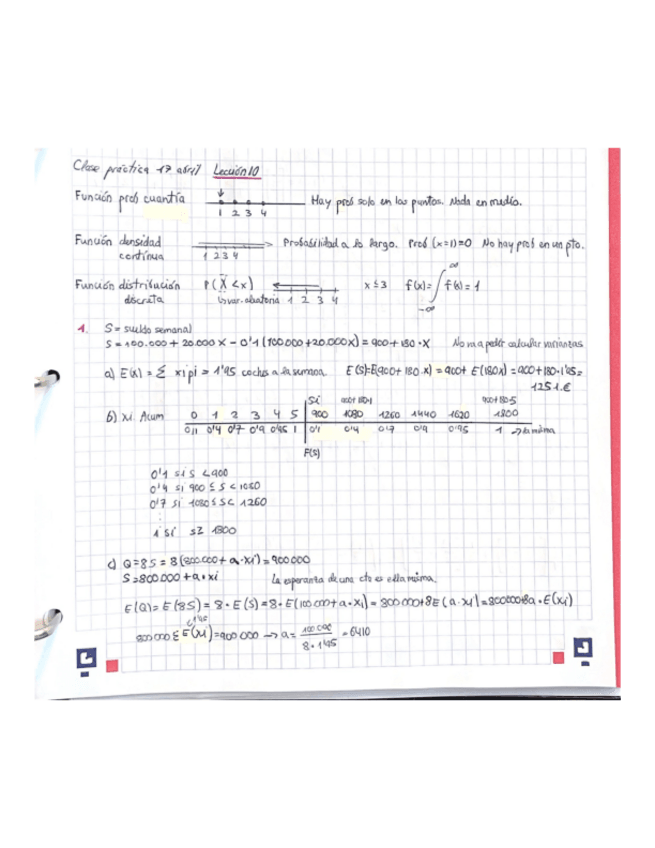 Clase práctica 17 abril Lección 10
Función prob cuantía
Hay prob solo en los puntos. Nada en medio.
1 2 3 4
Función densidad continua
1 2 3 4
Probabilidad a lo largo. Prob (x=1)=0 No hay prob en un pto.
Función distribución discreta
P(X<x)
var. aleatoria 1 2 3 4
x≤3 f(x)=∫ f(x)=1
∞
-∞
1. S= sueldo semanal
S=100.000 + 20.000 X - 0'1 (100.000+20.000X) = 900+180·X No va a pedir calcular varianzas
a) E(X) = Σ xipi = 1'95 coches a la semana. E(S)=E(900+180·X) = 900+ E(180X) = 900+180·1'95=
1251.€
Si 900+180·1 900+180·5
b) xi Acum 0 1 2 3 4 5 900 1080 1260 1440 1620 1800
0,1 0'4 0'7 0'9 0'95 1 0'1 0'4 0'7 0'9 0'95 1 → la misma
F(S)
0'1 si S <900
0'4 si 900 ≤ S < 1080
0'7 si 1080 ≤ S < 1260
⋮
1 si S≥ 1800
c) Q=8S = 8(800.000 + a·xi) = 900000
S=800.000+a·xi La esperanza de una cte es ella misma.
E(Q) = E(8S) = 8·E(S) = 8·E(100000+a·xi) = 800000+8E(a·xi)=800000+8a·E(xi)
1'45
800000 E(xi)=900 000 → a= 100 000 / 8·1'95 = 6410